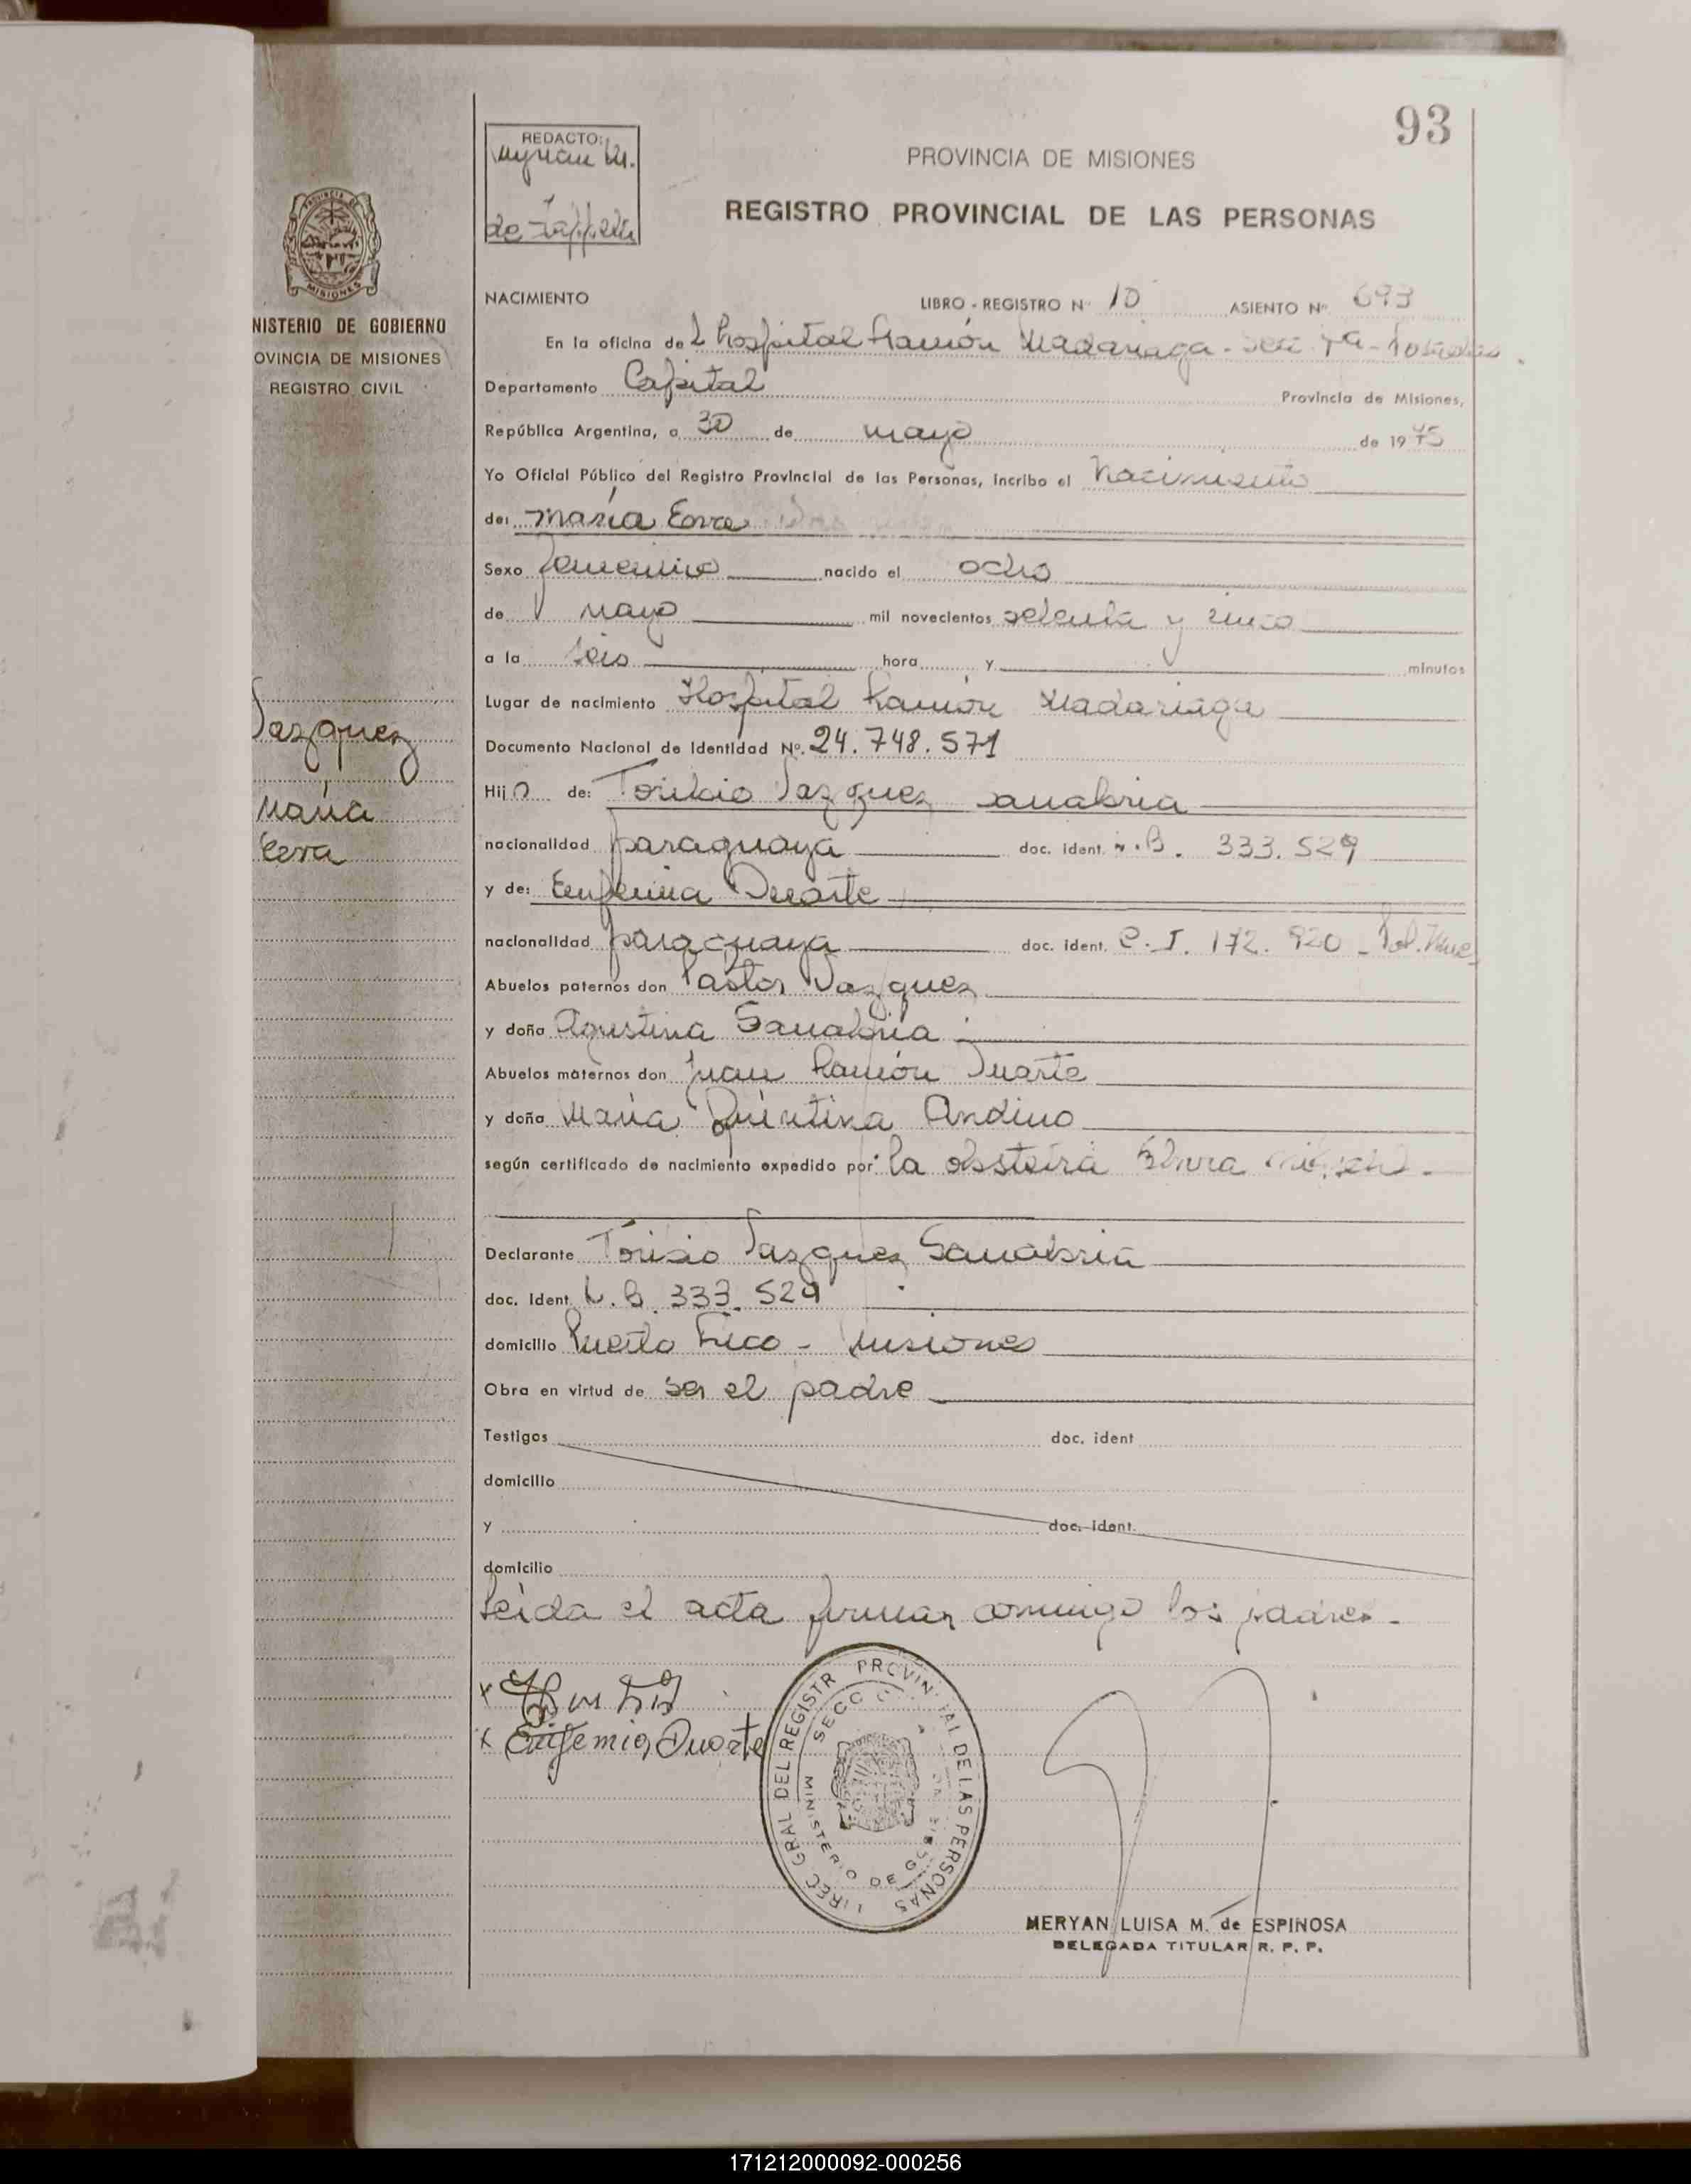 93
REDACTO:
de
PROVINCIA DE MISIONES
REGISTRO PROVINCIAL DE LAS PERSONAS
MISIONES
NISTERIO DE GOBIERNO
OVINCIA DE MISIONES
REGISTRO CIVIL
NACIMIENTO LIBRO - REGISTRO Nº 10 ASIENTO Nº 693
En la oficina del hospital Ramón Madariaga - Posadas.
Departamento Capital Provincia de Misiones,
República Argentina, a 30 de mayo de 1975
Yo Oficial Público del Registro Provincial de las Personas, incribo el nacimiento
de: María
Sexo femenino nacido el ocho
de mayo mil novecientos setenta y cinco
a la seis hora y minutos
Lugar de nacimiento Hospital Ramón Madariaga
Documento Nacional de Identidad Nº. 24.748.571
Vazquez
María
Hija de: Toribio Vazquez Sanabria
nacionalidad paraguaya doc. ident. 333.529
y de: Eufemia Duarte
nacionalidad paraguaya doc. ident. C.I. 172.920 - Pol.
Abuelos paternos don Pastor Vazquez
y doña Agustina Sanabria
Abuelos maternos don Juan Ramón Duarte
y doña María Quintina Andino
según certificado de nacimiento expedido por: la
Declarante Toribio Vazquez Sanabria
doc. Ident. 333.529
domicilio Puerto Rico - Misiones
Obra en virtud de ser el padre
Testigos doc. ident
domicilio
y doc. ident.
domicilio
Leída el acta firman conmigo los padres.
x
x Eufemia Duarte
DIREC GRAL DEL REGISTR PROVINCIAL DE LAS PERSONAS
SECC
MINISTERIO DE GOBIERNO
MERYAN LUISA M. de ESPINOSA
DELEGADA TITULAR R. P. P.
171212000092-000256